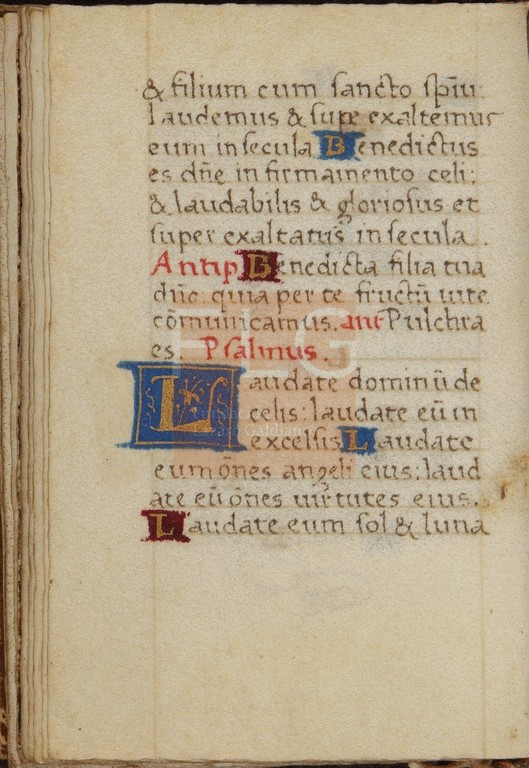 & filium cum sancto sp̄iu:
laudemus & supe exaltemus
eum in secula Benedictus
es dn̄e in firmamento celi:
& laudabilis & gloriosus et
super exaltatus in secula.
Antip Benedicta filia tua
dn̄o quia per te fructū uite
cōmunicamus. ant Pulchra
es. Psalmus.
Laudate dominū de
celis: laudate eū in
excelsis Laudate
eum ōnes angeli eius: laud
ate eū ōnes uirtutes eius.
Laudate eum sol & luna
FLG